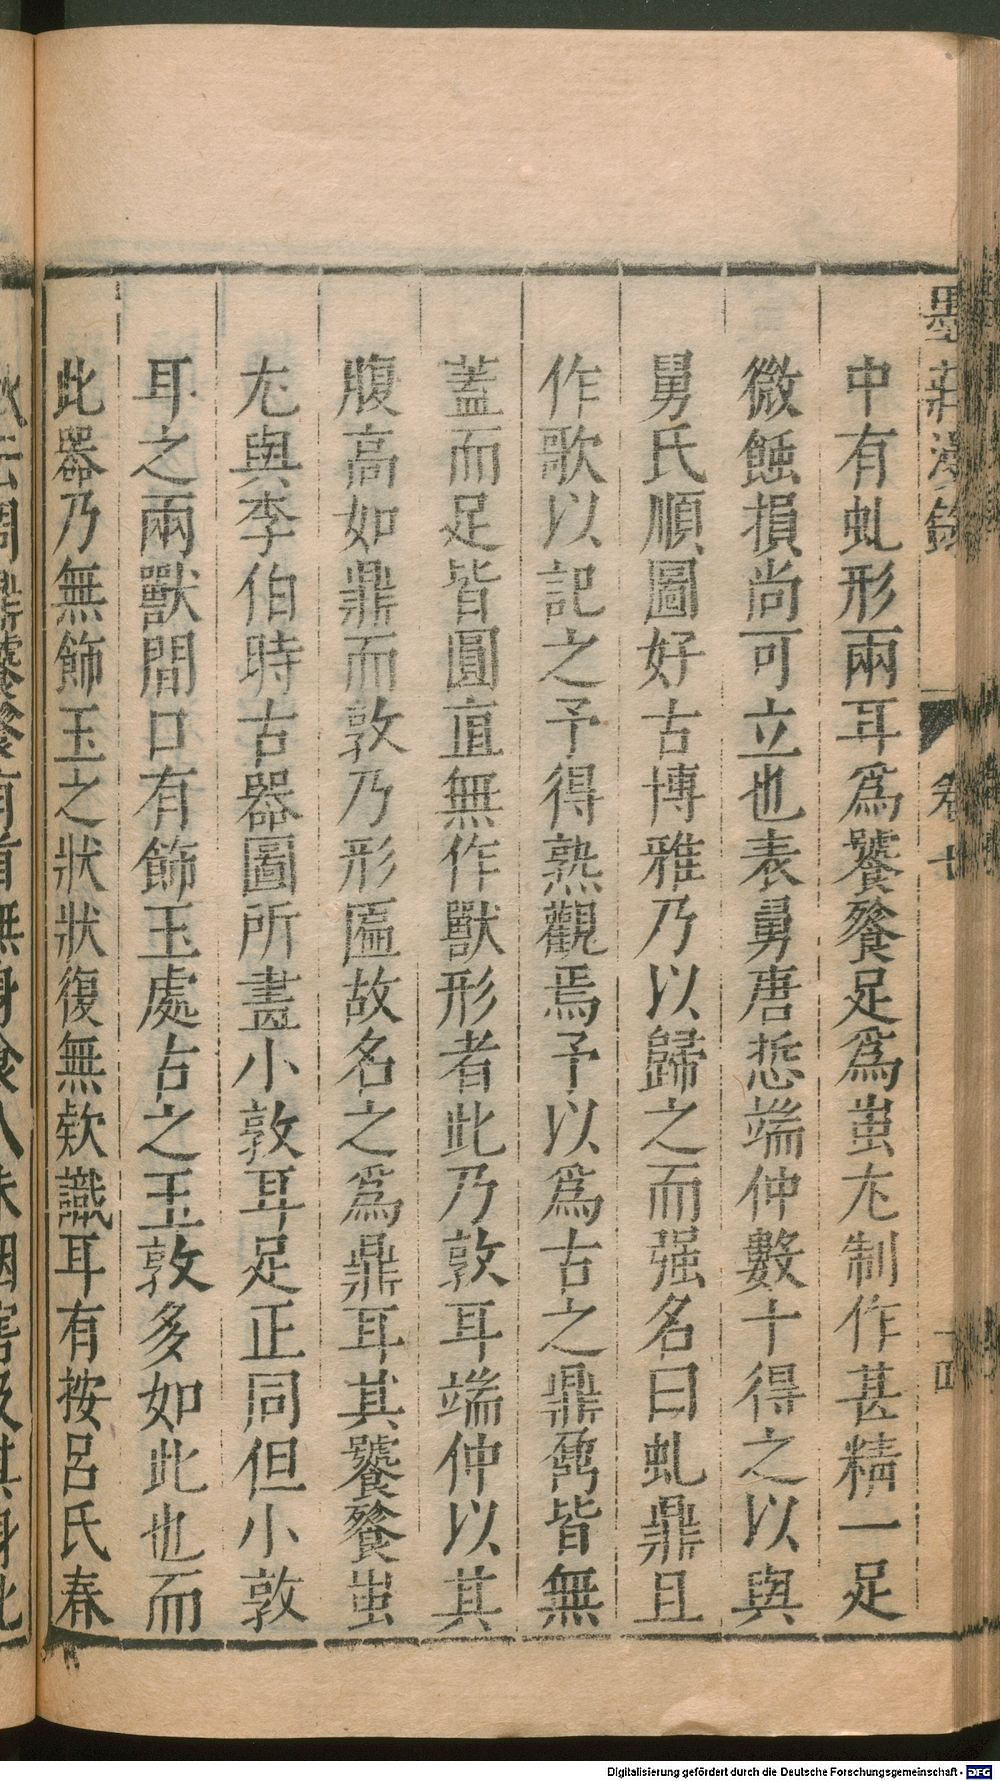 墨莊漫錄 卷十 十四
中有虬形兩耳爲饕餮足爲蚩尢制作甚精一足
微蝕損尚可立也表舅唐惁端仲數十得之以與
舅氏順圖好古博雅乃以歸之而强名曰虬鼎且
作歌以記之予得熟觀焉予以爲古之鼎鼐皆無
蓋而足皆圓直無作獸形者此乃敦耳端仲以其
腹高如鼎而敦乃形匾故名之爲鼎耳其饕餮蚩
尢與李伯時古器圖所畫小敦耳足正同但小敦
耳之兩獸間口有飾玉處古之玉敦多如此也而
此器乃無飾玉之狀狀復無欵識耳有按呂氏春
Digitalisierung gefördert durch die Deutsche Forschungsgemeinschaft - DFG